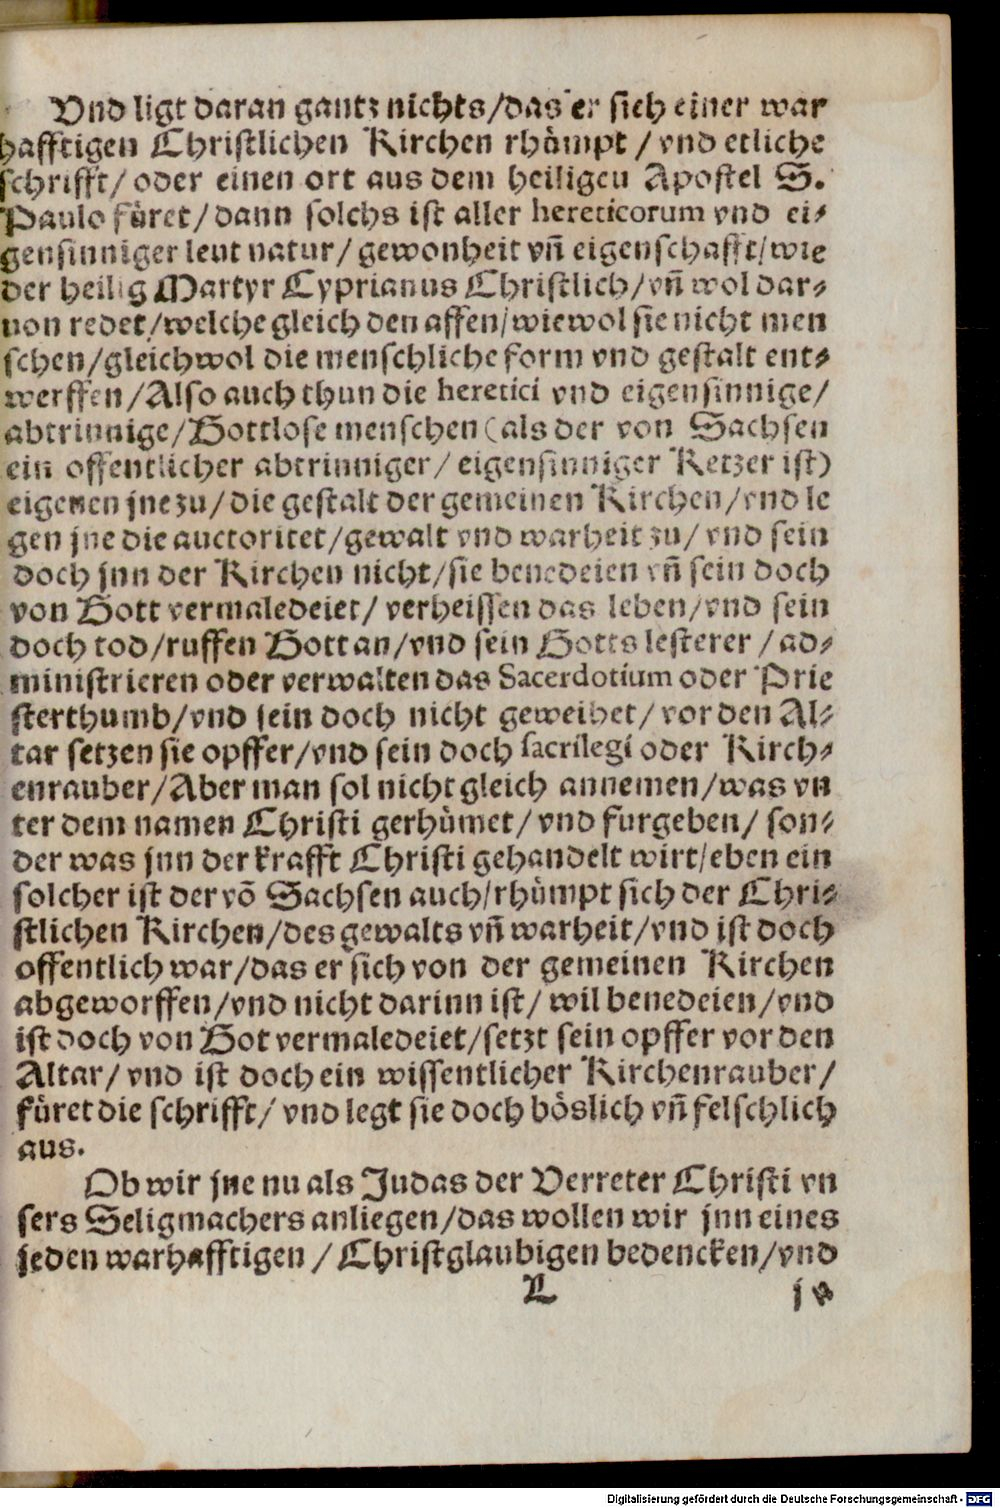 Vnd ligt daran gantz nichts/das er sich einer war
hafftigen Christlichen Kirchen rhuͤmpt / vnd etliche
schrifft/ oder einen ort aus dem heiligeu Apostel S.
Paulo fuͤret/ dann solchs ist aller hereticorum vnd ei⸗
gensinniger leut natur/ gewonheit vñ eigenschafft/wie
der heilig Martyr Cyprianus Christlich/vñ wol dar⸗
uon redet/welche gleich den affen/wiewol sie nicht men
schen/gleichwol die menschliche form vnd gestalt ent⸗
werffen/Also auch thun die heretici vnd eigensinnige/
abtrinnige/Gottlose menschen (als der von Sachsen
ein offentlicher abtrinniger/ eigensinniger Ketzer ist)
eigenen jne zu/ die gestalt der gemeinen Kirchen/vnd le
gen jne die auctoritet/gewalt vnd warheit zu/ vnd sein
doch jnn der Kirchen nicht/sie benedeien vñ sein doch
von Gott vermaledeiet/ verheissen das leben/vnd sein
doch tod/ruffen Gott an/vnd sein Gotts lesterer / ad⸗
ministrieren oder verwalten das Sacerdotium oder Prie
sterthumb/vnd sein doch nicht geweihet/ vor den Al⸗
tar setzen sie opffer/vnd sein doch sacrilegi oder Kirch⸗
enrauber/Aber man sol nicht gleich annemen/was vn
ter dem namen Christi gerhuͤmet/ vnd furgeben/ son⸗
der was jnn der krafft Christi gehandelt wirt/eben ein
solcher ist der võ Sachsen auch/rhuͤmpt sich der Chri⸗
stlichen Kirchen/des gewalts vñ warheit/vnd ist doch
offentlich war/das er sich von der gemeinen Kirchen
abgeworffen/vnd nicht darinn ist/ wil benedeien/vnd
ist doch von Got vermaledeiet/setzt sein opffer vor den
Altar/ vnd ist doch ein wissentlicher Kirchenrauber/
fuͤret die schrifft/ vnd legt sie doch boͤslich vñ felschlich
aus.
Ob wir jne nu als Judas der Verreter Christi vn
sers Seligmachers anliegen/das wollen wir jnn eines
jeden warhafftigen / Christglaubigen bedencken/vnd
L
Digitalisierung gefördert durch die Deutsche Forschungsgemeinschaft - DFG